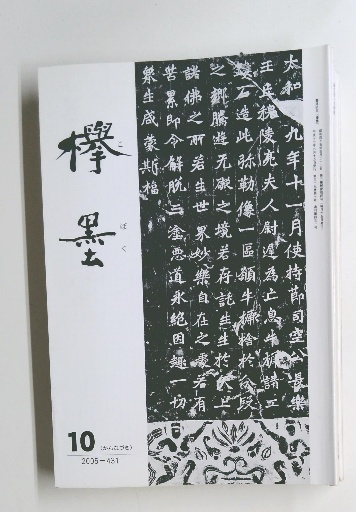 太和十九年十一月使持節司空公長樂
王丘穆陵亮夫人尉遲為亡息牛橛請工
鏤石造此彌勒像一區願牛橛捨於分段
之鄉騰遊无礙之境若存託生生於天上
諸佛之所若生世界妙樂自在之處若有
苦累即令解脫三塗惡道永絕因趣一切
眾生咸蒙斯福
欅墨
ぼく
10 (かんなづき)
2005-431